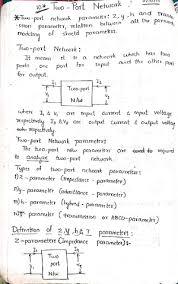 Two-Port Network
*Two-port network parameter: Z, y, h and trans
-ssion parameter, relation between all the parame
modeling of parameters.
Two-port Network:
It means it is a network which has two
ports, one port for input and the other port
for output.
I1 I2
V1 Two port N/w V2
where I1 & V1 are input current & input voltage
respectively I2 & V2 are output current & output voltage
respectively.
Two-port Network parameters:
The two-port n/w parameters are used to
analyze two-port network.
Types of two-port network parameters:
Z-parameter (impedance-parameter)
y-parameter (admittance-parameter)
h-parameter (hybrid-parameter)
T-parameter (transmission or ABCD-parameter)
Definition of Z, y, h & T parameters:
Z-parameters (impedance parameter):-
I1 I2
Two port N/w